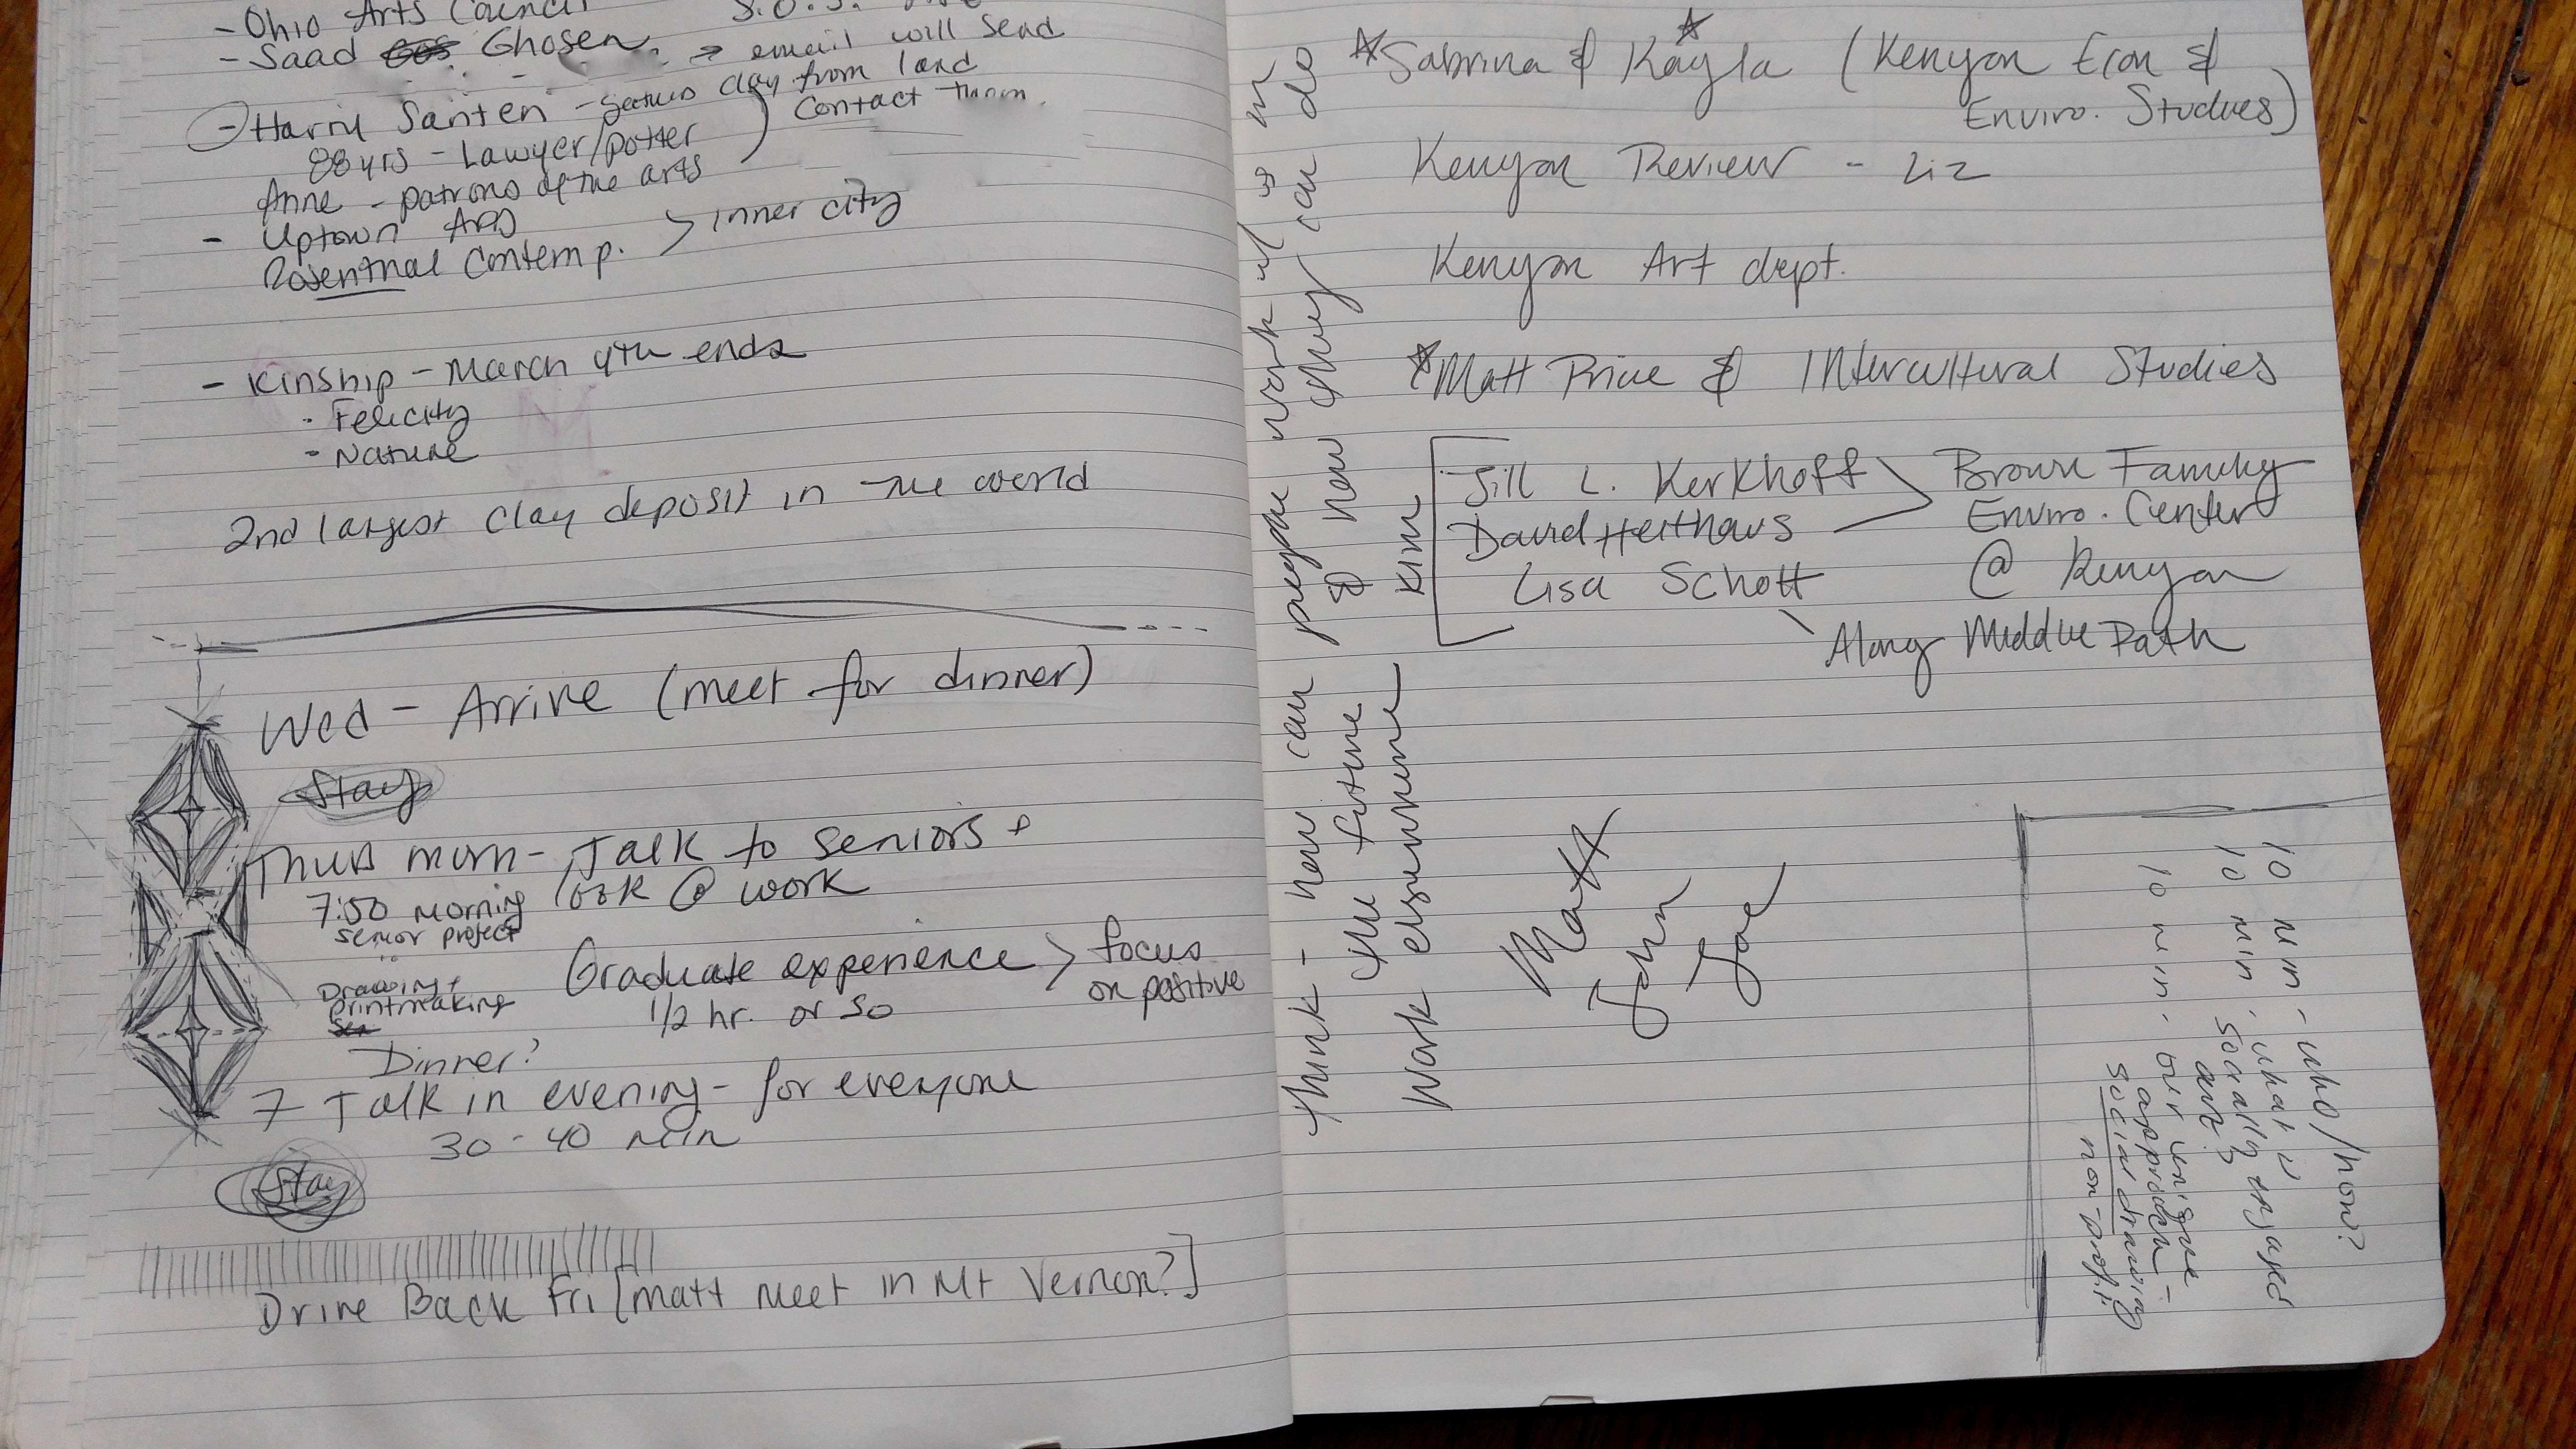 - Ohio Arts Council S.O.S.
- Saad Ghosen. → email will send
- Harry Santen - clay from land
88 yrs - Lawyer/potter ) Contact them.
Anne - patrons of the arts
- Uptown Arts > inner city
Rosenthal Contemp.
- Kinship - March 4th ends
· Felicity
- Nature
2nd largest clay deposit in the world
Wed - Arrive (meet for dinner)
Stay
Thurs morn - Talk to seniors +
7:50 morning look @ work
senior project
Graduate experience > focus
on positive
Drawing +
printmaking
1/2 hr. or so
Dinner?
7 Talk in evening - for everyone
30-40 min
Stay
Drive Back Fri [Matt meet in Mt Vernon?]
Think - how can people work w/ us in
the future & how they can do
work elsewhere
Sabrina & Kayla (Kenyon Econ &
Enviro. Studies)
Kenyon Review - Liz
Kenyon Art dept.
Matt Price & Intercultural Studies
Kim
Jill L. Kerkhoff > Brown Family
David Heithaus Enviro. Center
Lisa Schott @ Kenyon
Along Middle Path
Matt
John
10 min - who/how?
10 min - what is
socially engaged
art?
10 min - our unique
approach -
social drawing
non-profit